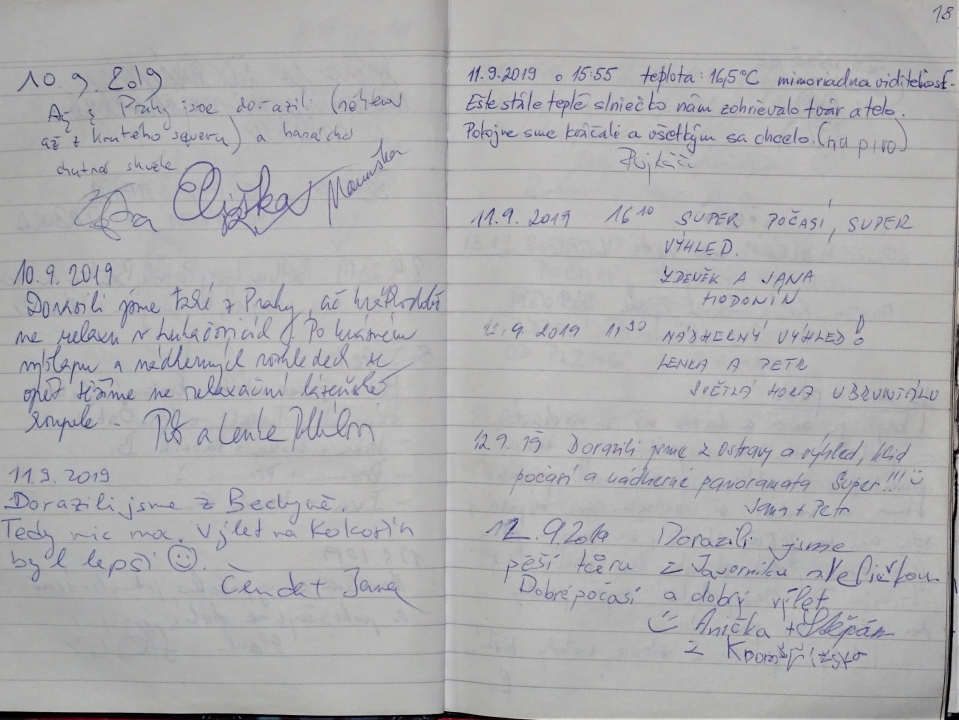 10. 9. 2019
Až z Prahy jsme dorazili (někteří
až z krutého severu) a
chutná skvěle
Eliška Maruška
10. 9. 2019
Dorazili jsme také z Prahy, ač krátkodobě
na relaxu v Po krásném
výšlapu a nádherných rozhledech se
opět těšíme na relaxační lázeňské
koupele.
Petr a Lenka
11. 9. 2019
Dorazili jsme z Bechyně.
Tedy nic moc. Výlet na Kokořín
byl lepší ☺.
Čenda + Jana
18
11.9.2019 o 15:55 teplota: 16,5°C mimoriadna viditeľnosť.
Ešte stále teplé slniečko nám zohrievalo tvár a telo.
Pokojne sme kráčali a všetkým sa chcelo. (na pivo)
11. 9. 2019 16 10 SUPER POČASÍ, SUPER
VÝHLED.
ZDENĚK A JANA
HODONÍN
9. 2019 11 30 NÁDHERNÝ VÝHLED!
LENKA A PETR
SVĚTLÁ HORA U BRUNTÁLU
12.9. 19 Dorazili jsme z Ostravy a výhled, klid
počasí a nádherné panoramata Super!!! ☺
Jana + Petr
12. 9. 2019 Dorazili jsme
pěší túru z Javorníku
Dobré počasí a dobrý výlet
☺ Anička + Štěpán
z Kroměřížska